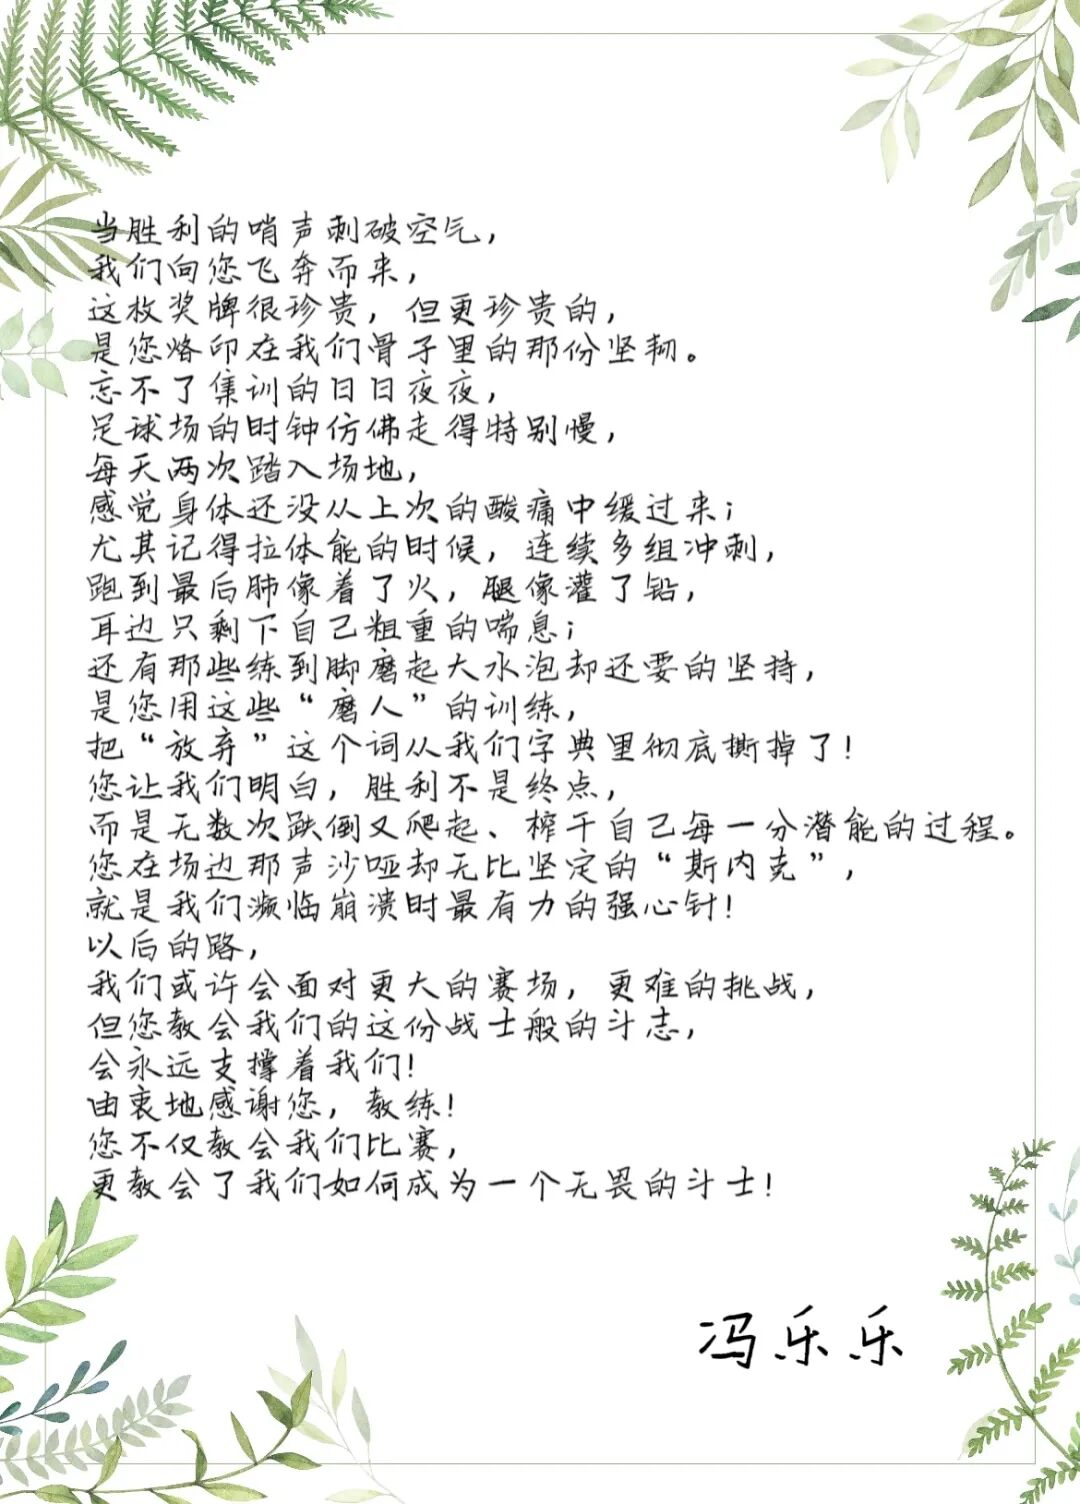 当胜利的哨声刺破空气，
我们向您飞奔而来，
这枚奖牌很珍贵，但更珍贵的，
是您烙印在我们骨子里的那份坚韧。
忘不了集训的日日夜夜，
足球场的时钟仿佛走得特别慢，
每天两次踏入场地，
感觉身体还没从上次的酸痛中缓过来；
尤其记得拉体能的时候，连续多组冲刺，
跑到最后肺像着了火，腿像灌了铅，
耳边只剩下自己粗重的喘息；
还有那些练到脚磨起大水泡却还要的坚持，
是您用这些“磨人”的训练，
把“放弃”这个词从我们字典里彻底撕掉了！
您让我们明白，胜利不是终点，
而是无数次跌倒又爬起、榨干自己每一分潜能的过程。
您在场边那声沙哑却无比坚定的“斯内克”，
就是我们濒临崩溃时最有力的强心针！
以后的路，
我们或许会面对更大的赛场，更难的挑战，
但您教会我们的这份战士般的斗志，
会永远支撑着我们！
由衷地感谢您，教练！
您不仅教会我们比赛，
更教会了我们如何成为一个无畏的斗士！
冯乐乐